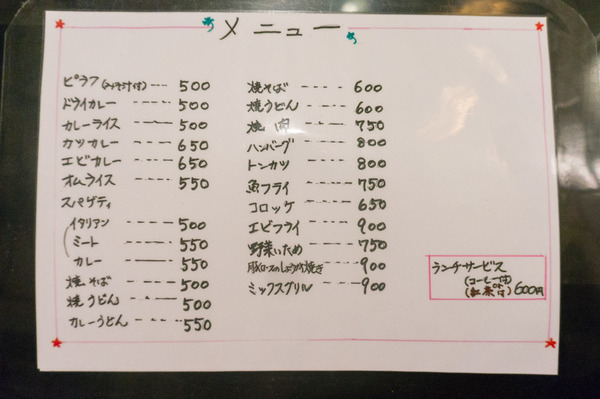 メニュー
ピラフ(みそ汁付) --- 500
ドライカレー ---- 500
カレーライス ---- 500
カツカレー ---- 650
エビカレー ---- 650
オムライス ---- 550
スパゲティ
イタリアン ---- 500
ミート ---- 550
カレー ---- 550
焼そば ---- 500
焼うどん ---- 500
カレーうどん ---- 550
焼そば ---- 600
焼うどん ---- 600
焼肉 ---- 750
ハンバーグ ---- 800
トンカツ ---- 800
魚フライ ---- 750
コロッケ ---- 650
エビフライ ---- 900
野菜いため ---- 750
豚ロースのしょうが焼き --- 900
ミックスグリル ---- 900
ランチサービス
(コーヒー付)
or
(紅茶付) 600円